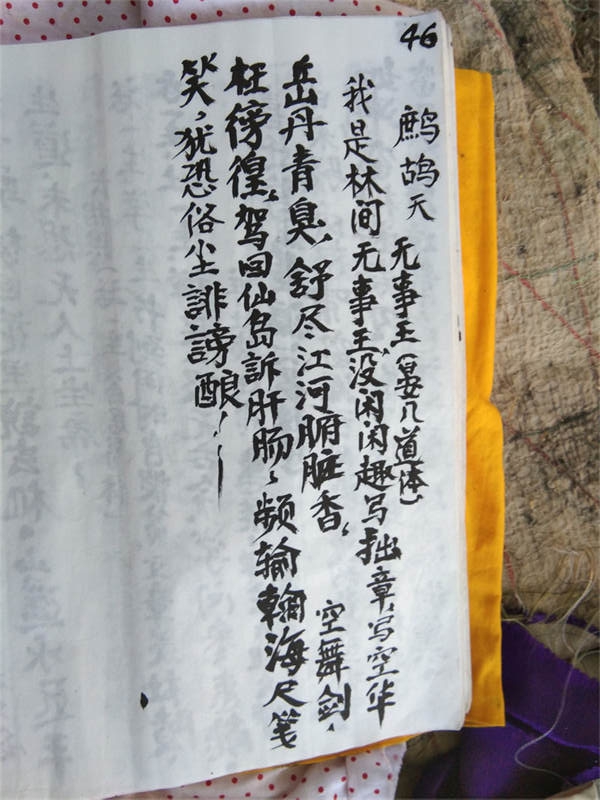 46
鹧鸪天 无事王(晏几道体)
我是林间无事王,没闲闲趣写拙章,写空华
岳丹青臭,舒尽江河腑脏香,空舞剑,
枉傍徨,驾回仙岛訴肝肠,频输翰海尺笺
笑,犹恐俗尘誹謗酿!